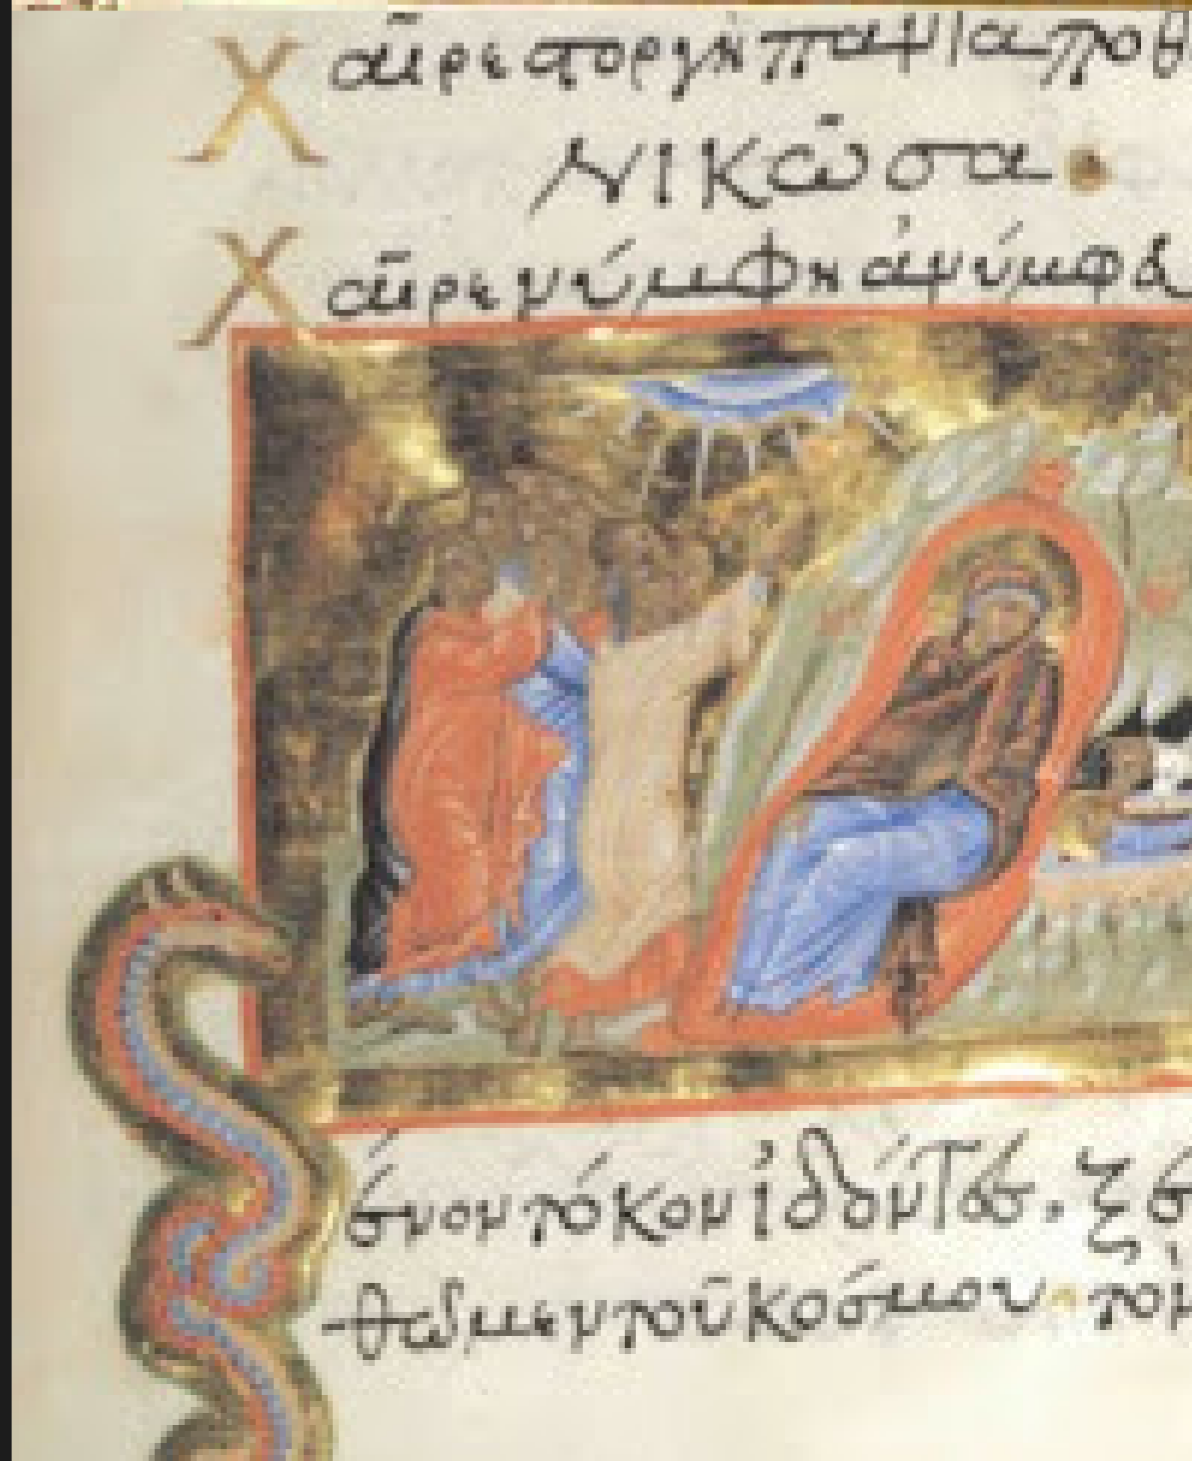 Χαῖρε στοργὴ πάντα ποθ
νικῶσα·
Χαῖρε νύμφη ἀνύμφε
ένον τόκον ἰδόντες, ξε
θῶμεν τοῦ κόσμου· τον